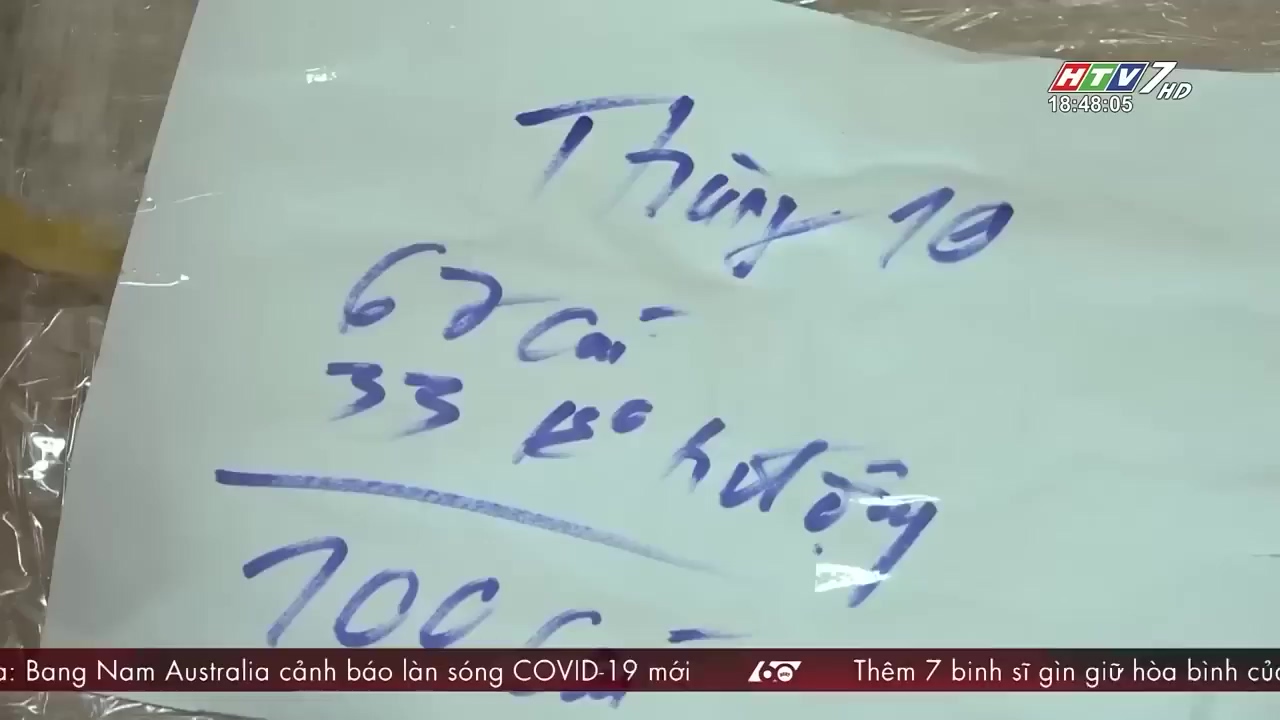 HTV7 HD
18:48:05
Thùng 10
67 cái
33 ko hđ động
100 cái
a: Bang Nam Australia cảnh báo làn sóng COVID-19 mới 60 giây Thêm 7 binh sĩ gìn giữ hòa bình củ